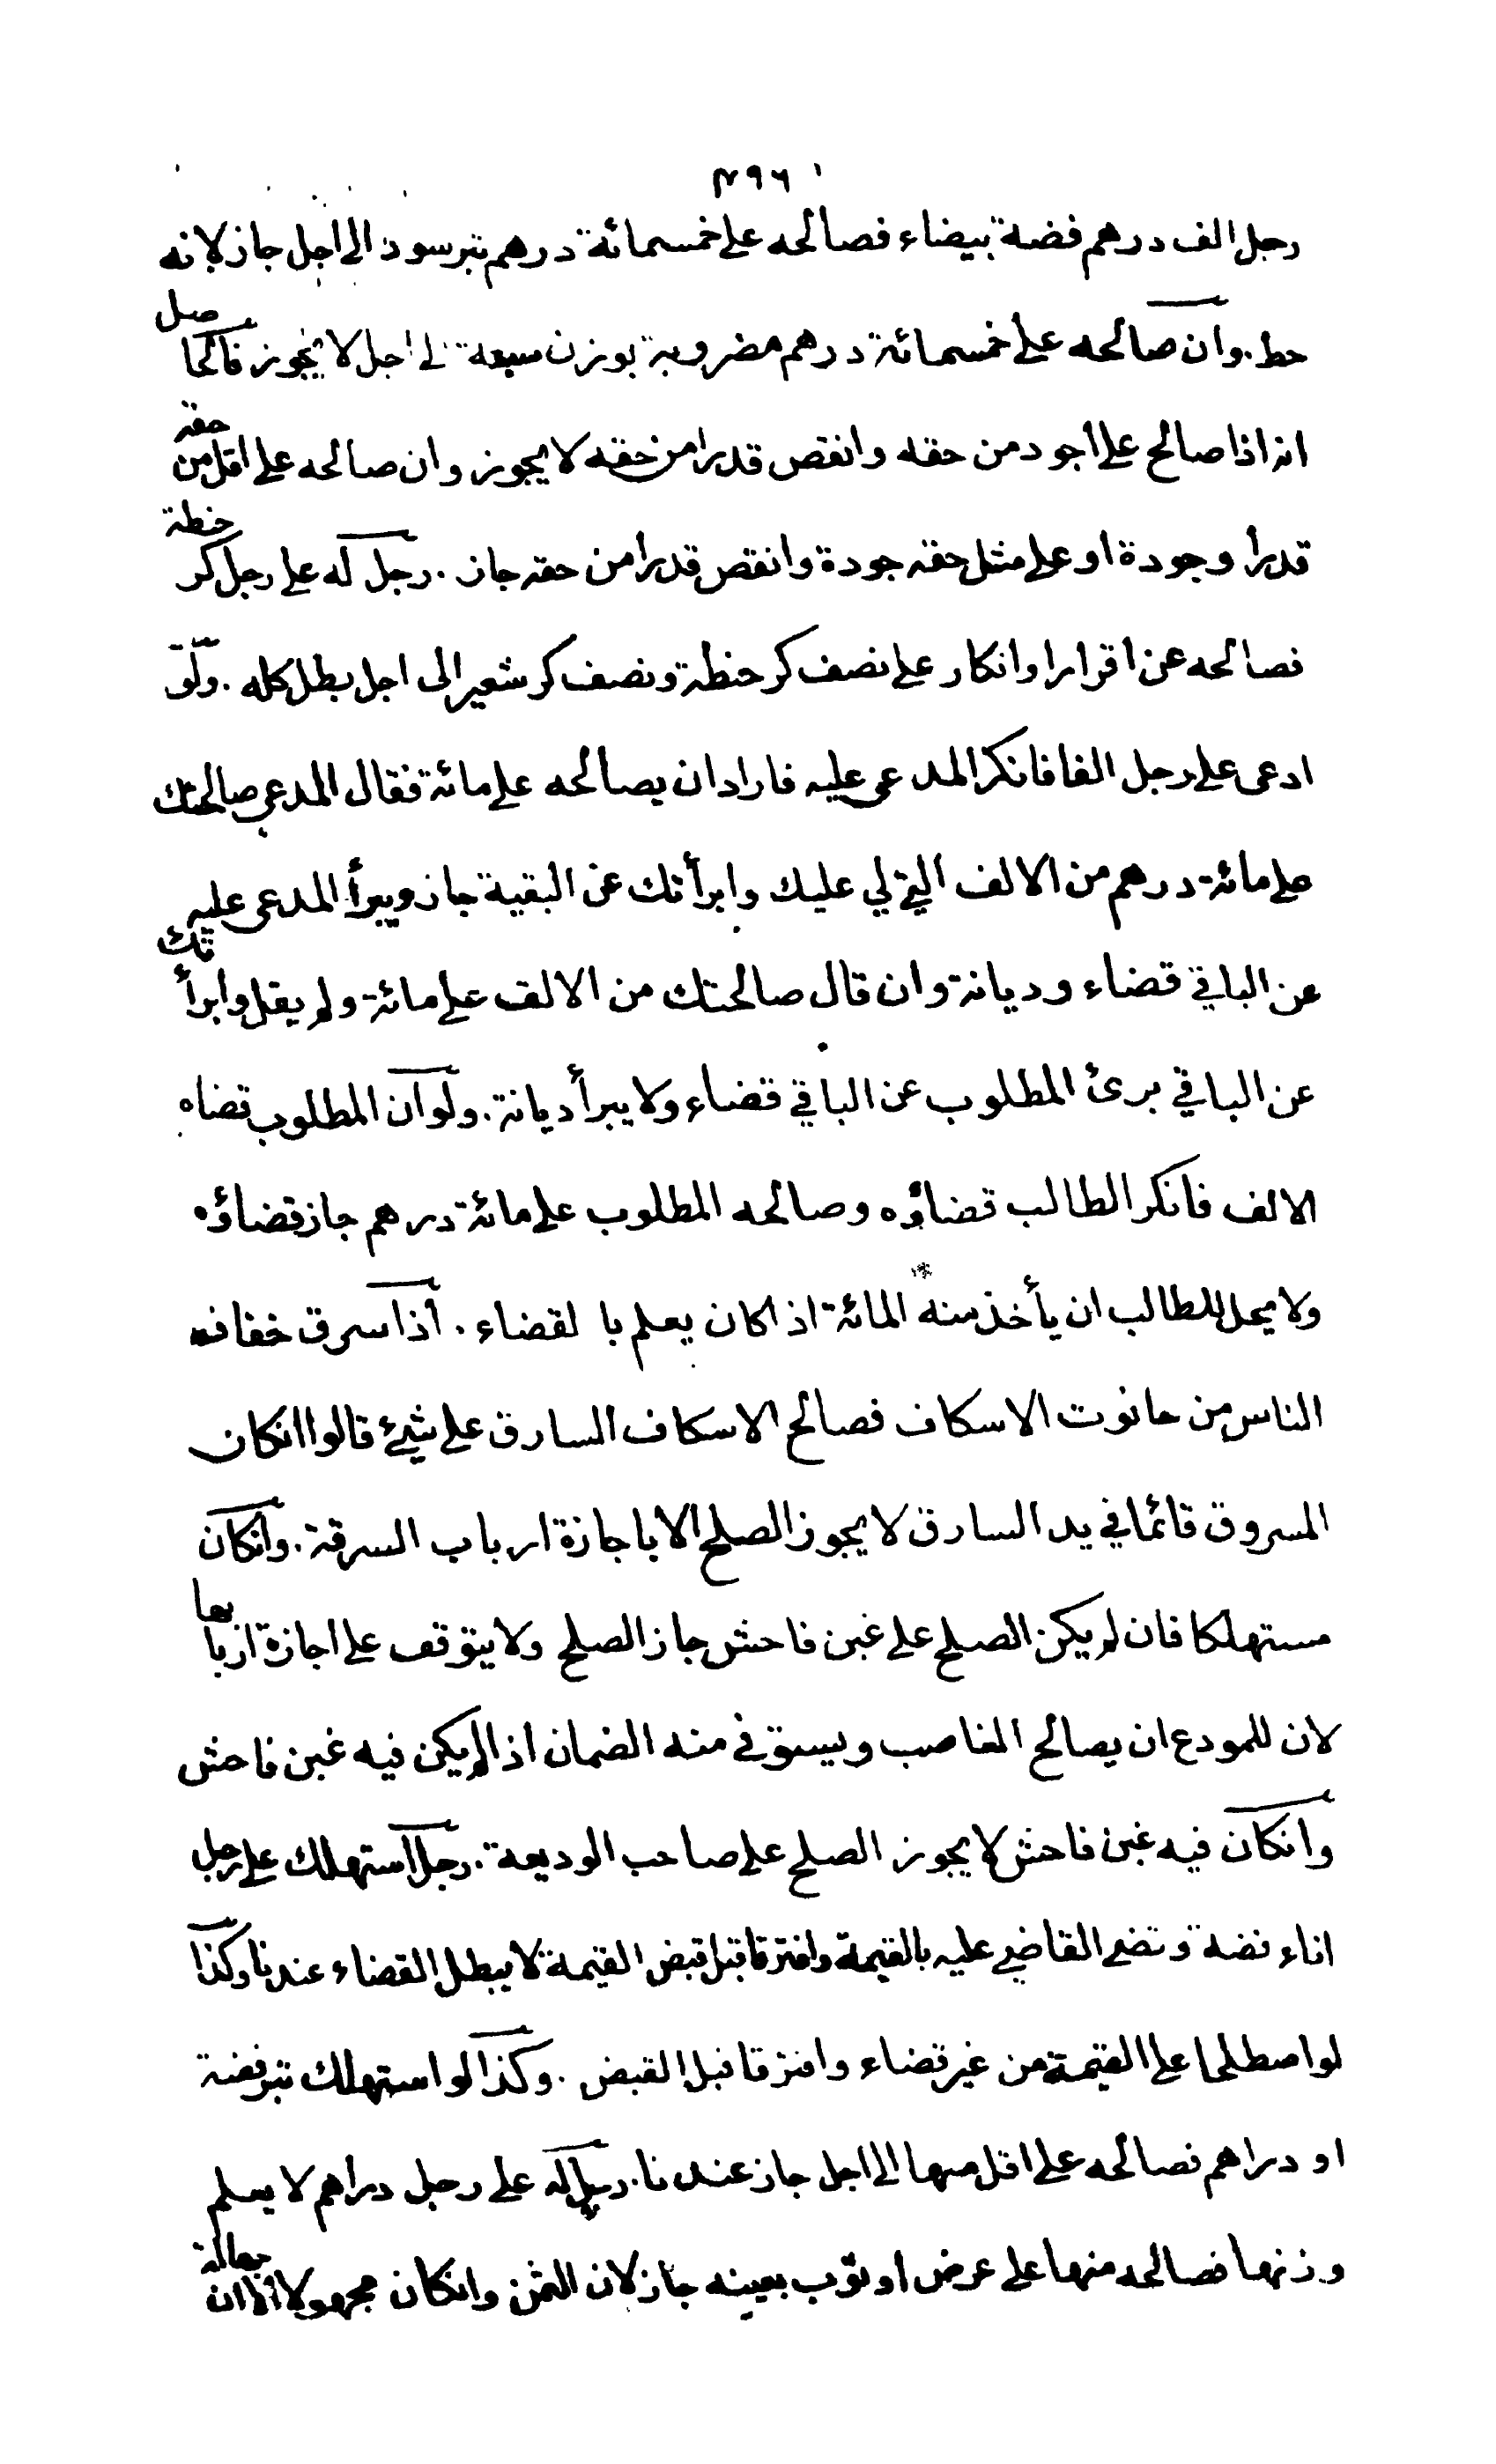 ٤٩٦
رجل الف درهم فضة بيضاء فصالحه على خمسمائة درهم تبر سود الى اجل جاز لانه
حط . وان صالحه على خمسمائة درهم مضروبة بوزن سبعة الى اجل لا يجوز فالحاصل
انه اذا صالح على اجود من حقه وانقص قدرا من حقه لا يجوز وان صالحه على اقل من حقه
قدرا وجودة او على مثل حقه جودة وانقص قدرا من حقه جاز . رجل له على رجل كر حنطة
فصالحه عن اقرار او انكار على نصف كر حنطة ونصف كر شعير الى اجل بطل كله . ولو
ادعى على رجل الفا فانكر المدعى عليه فاراد ان يصالحه على مائة فقال المدعي صالحتك
على مائة درهم من الالف التي لي عليك وابرأتك عن البقية جاز ويبرأ المدعى عليه
عن الباقي قضاء وديانة وان قال صالحتك من الالف على مائة ولم يقل وابرأتك
عن الباقي برئ المطلوب عن الباقي قضاء ولا يبرأ ديانة . ولو ان المطلوب قضاه
الالف فانكر الطالب قضاؤه وصالحه المطلوب على مائة درهم جاز قضاؤه
ولا يحل للطالب ان يأخذ منه المائة اذا كان يعلم با لقضاء . اذا سرق خفاف
الناس من حانوت الاسكاف فصالح الاسكاف السارق على شيئ قالوا انكان
المسروق قائما في يد السارق لا يجوز الصلح الا باجازة ارباب السرقة . وانكان
مستهلكا فان لم يكن الصلح على غبن فاحش جاز الصلح ولا يتوقف على اجازة اربابها
لان للمودع ان يصالح الغاصب ويستوفي منه الضمان اذا لم يكن فيه غبن فاحش
وانكان فيه غبن فاحش لا يجوز الصلح على صاحب الوديعة . رجل استهلك على رجل
اناء فضة وقضى القاضي عليه بالقيمة وافترقا قبل قبض القيمة لا يبطل القضاء عندنا وكذا
لو اصطلحا على القيمة من غير قضاء وافترقا قبل القبض . وكذا لو استهلك تبر فضة
او دراهم فصالحه على اقل منها الى اجل جاز عندنا . رجل له على رجل دراهم لا يعلم
وزنها فصالحه منها على عرض او ثوب بعينه جاز لان الثمن وانكان مجهولا الا ان جهالة